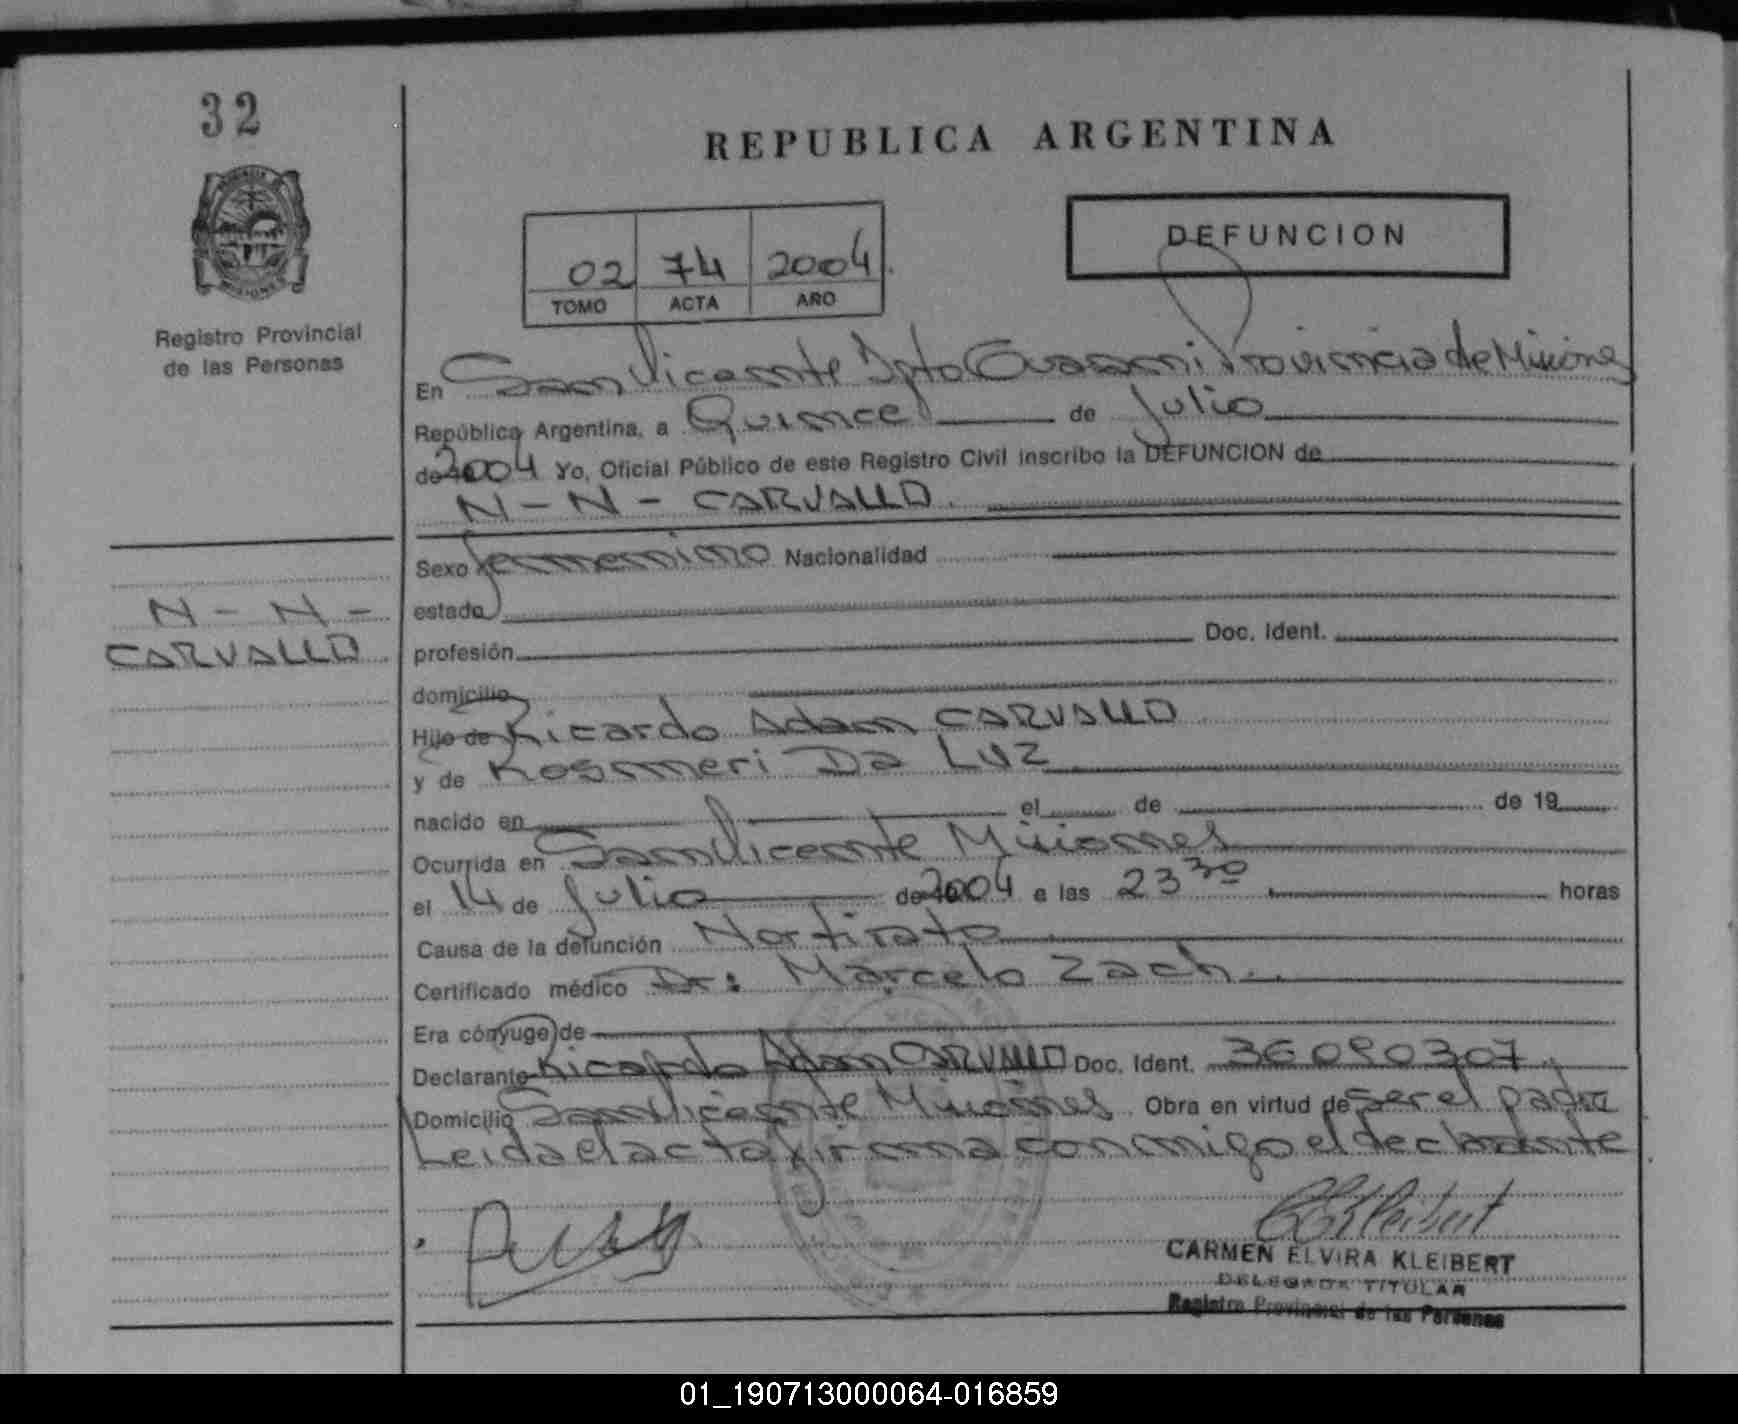 32
Registro Provincial
de las Personas
N - N -
CARVALLO
REPUBLICA ARGENTINA
02 74 2004
TOMO ACTA AÑO
DEFUNCION
En San Vicente Dpto Guarani Provincia de Misiones
República Argentina, a Quince de Julio
de 2004 Yo, Oficial Público de este Registro Civil inscribo la DEFUNCION de
N - N - CARVALLO.
Sexo femenino Nacionalidad
estado
profesión Doc. Ident.
domicilio
Hijo de Ricardo Adam CARVALLO
y de Rosmeri Da Luz
nacido en el de de 19
Ocurrida en San Vicente Misiones
el 14 de Julio de 2004 a las 23 30 horas
Causa de la defunción Nortinato
Certificado médico Dr: Marcelo Zach.
Era cónyuge de
Declarante Ricardo Adan CARVALLO Doc. Ident. 36090307
Domicilio San Vicente Misiones Obra en virtud de ser el padre
Leida el acta firma conmigo el declarante
CARMEN ELVIRA KLEIBERT
DELEGADA TITULAR
Registro Provincial de las Personas
01_190713000064-016859